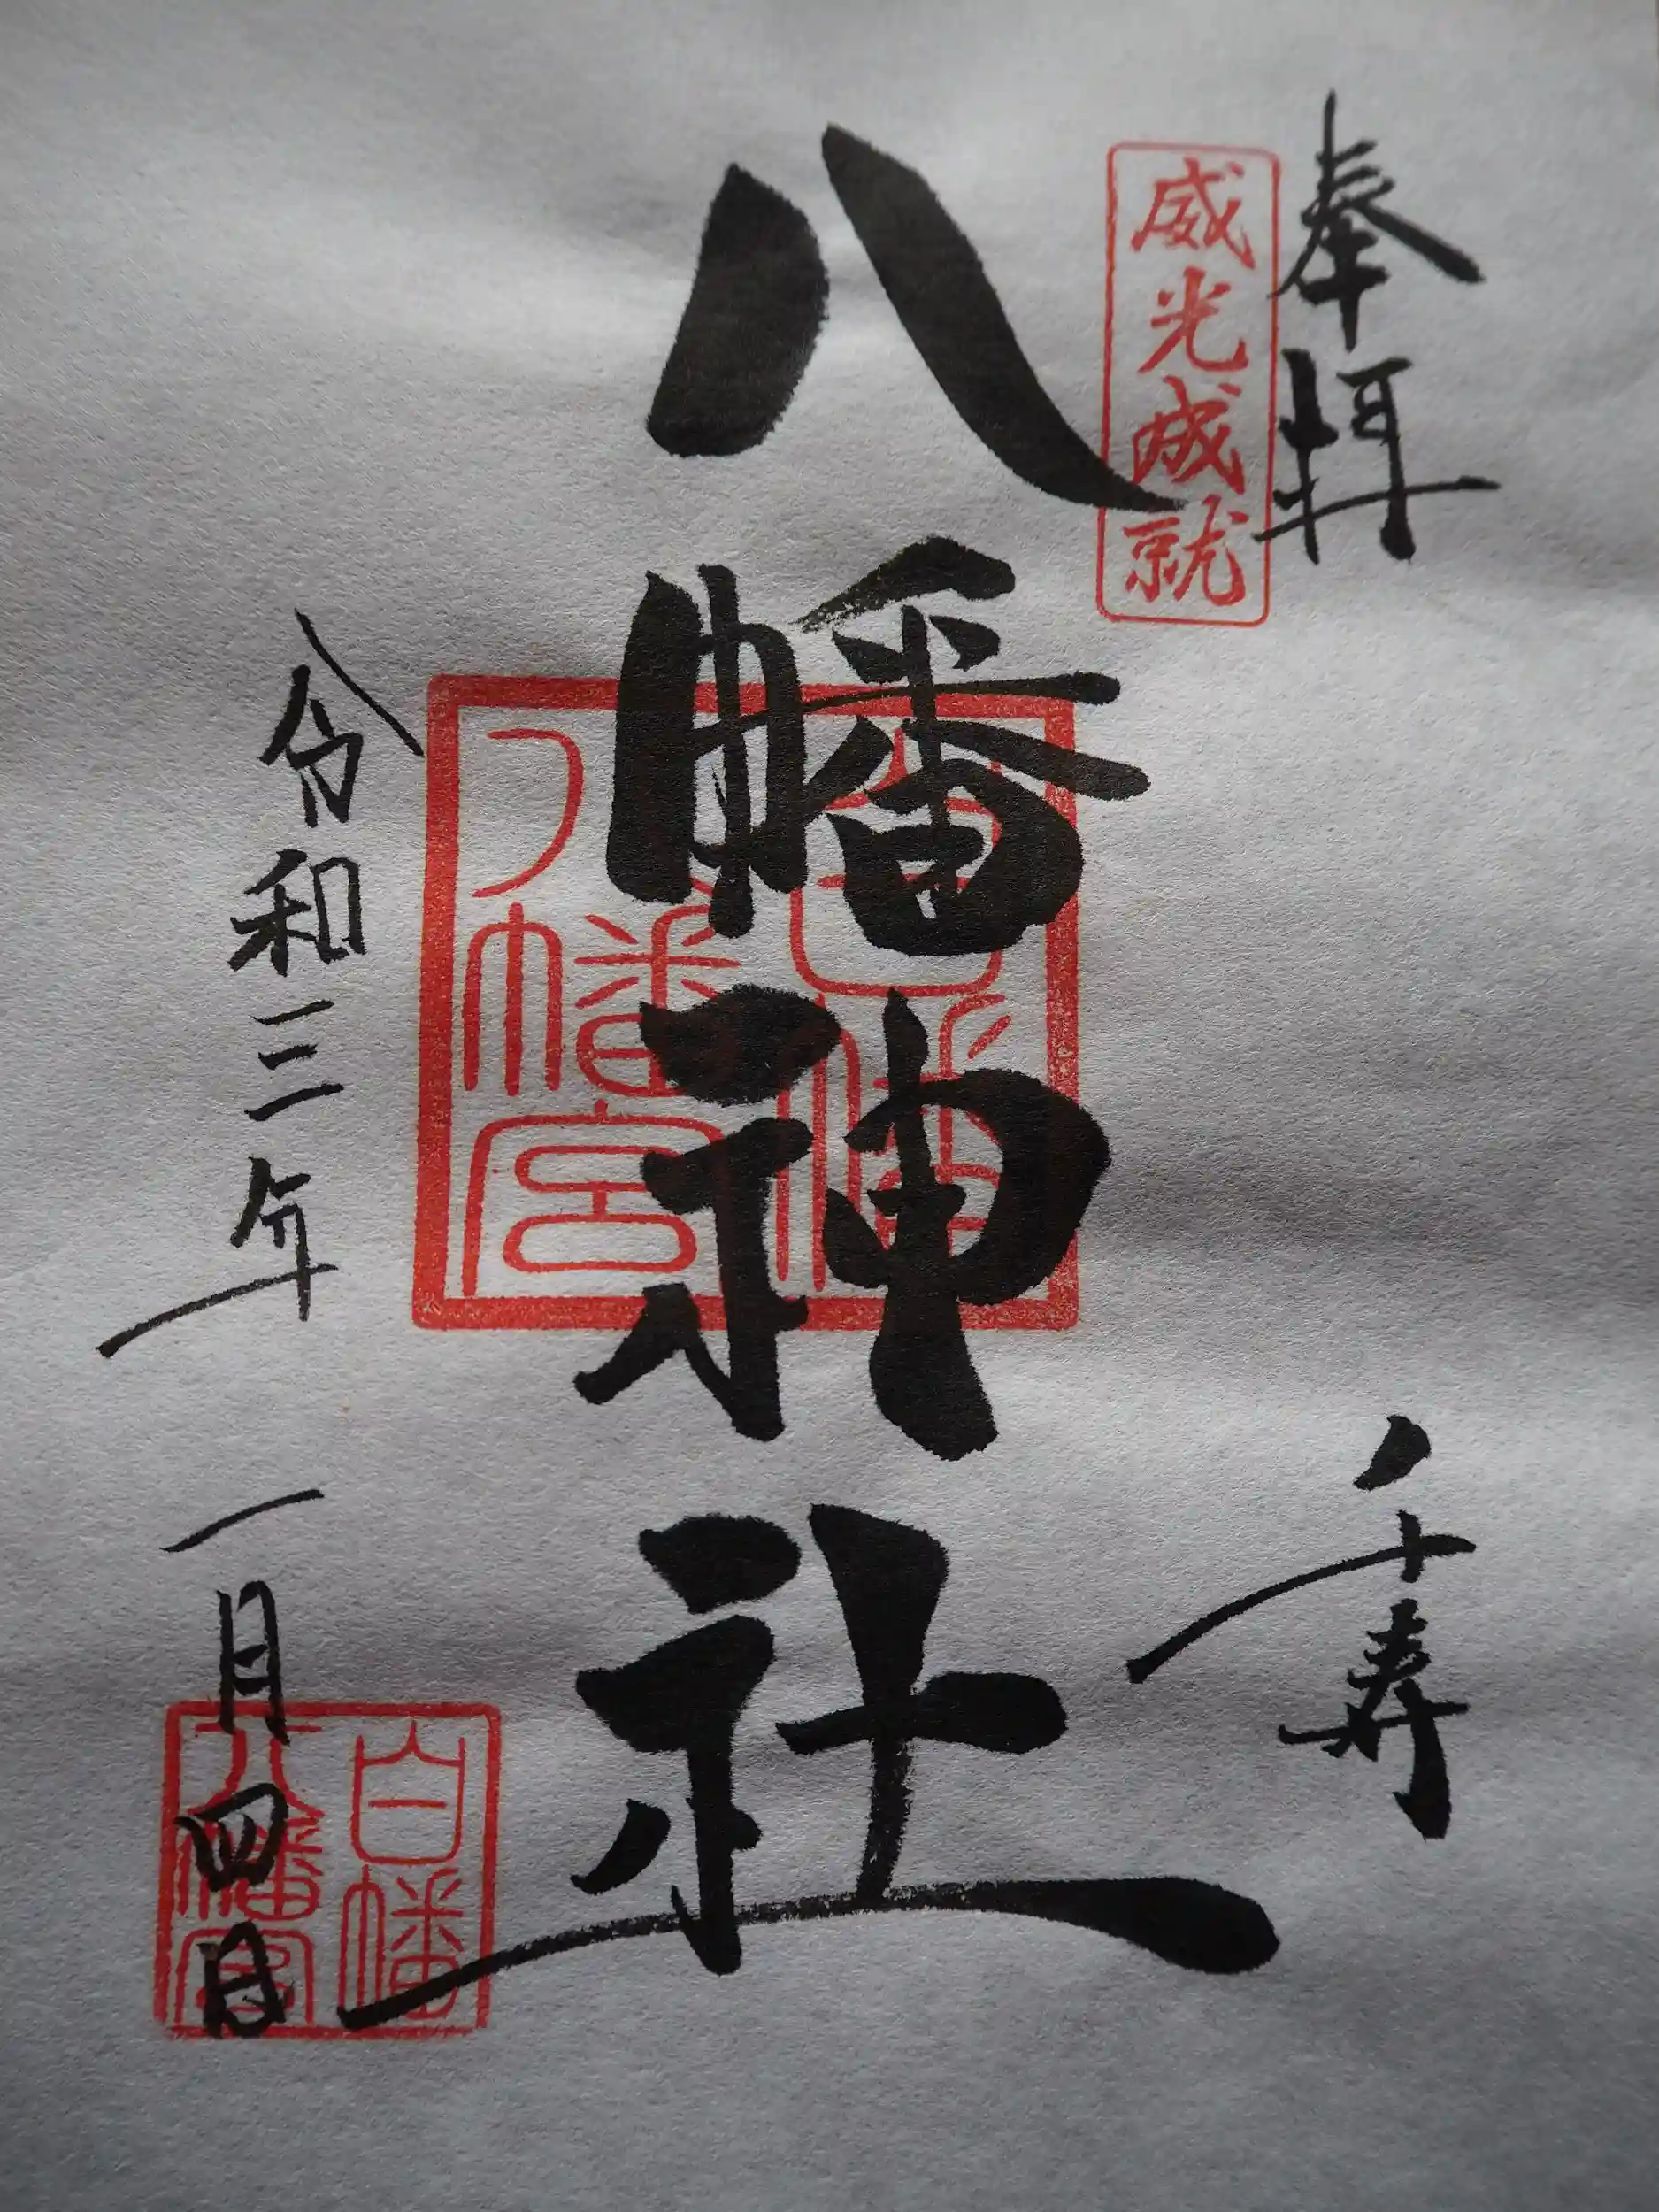 奉拝
威光成就
千寿
八幡神社
白幡
八幡宮
令和三年 一月四日
白幡
八幡宮